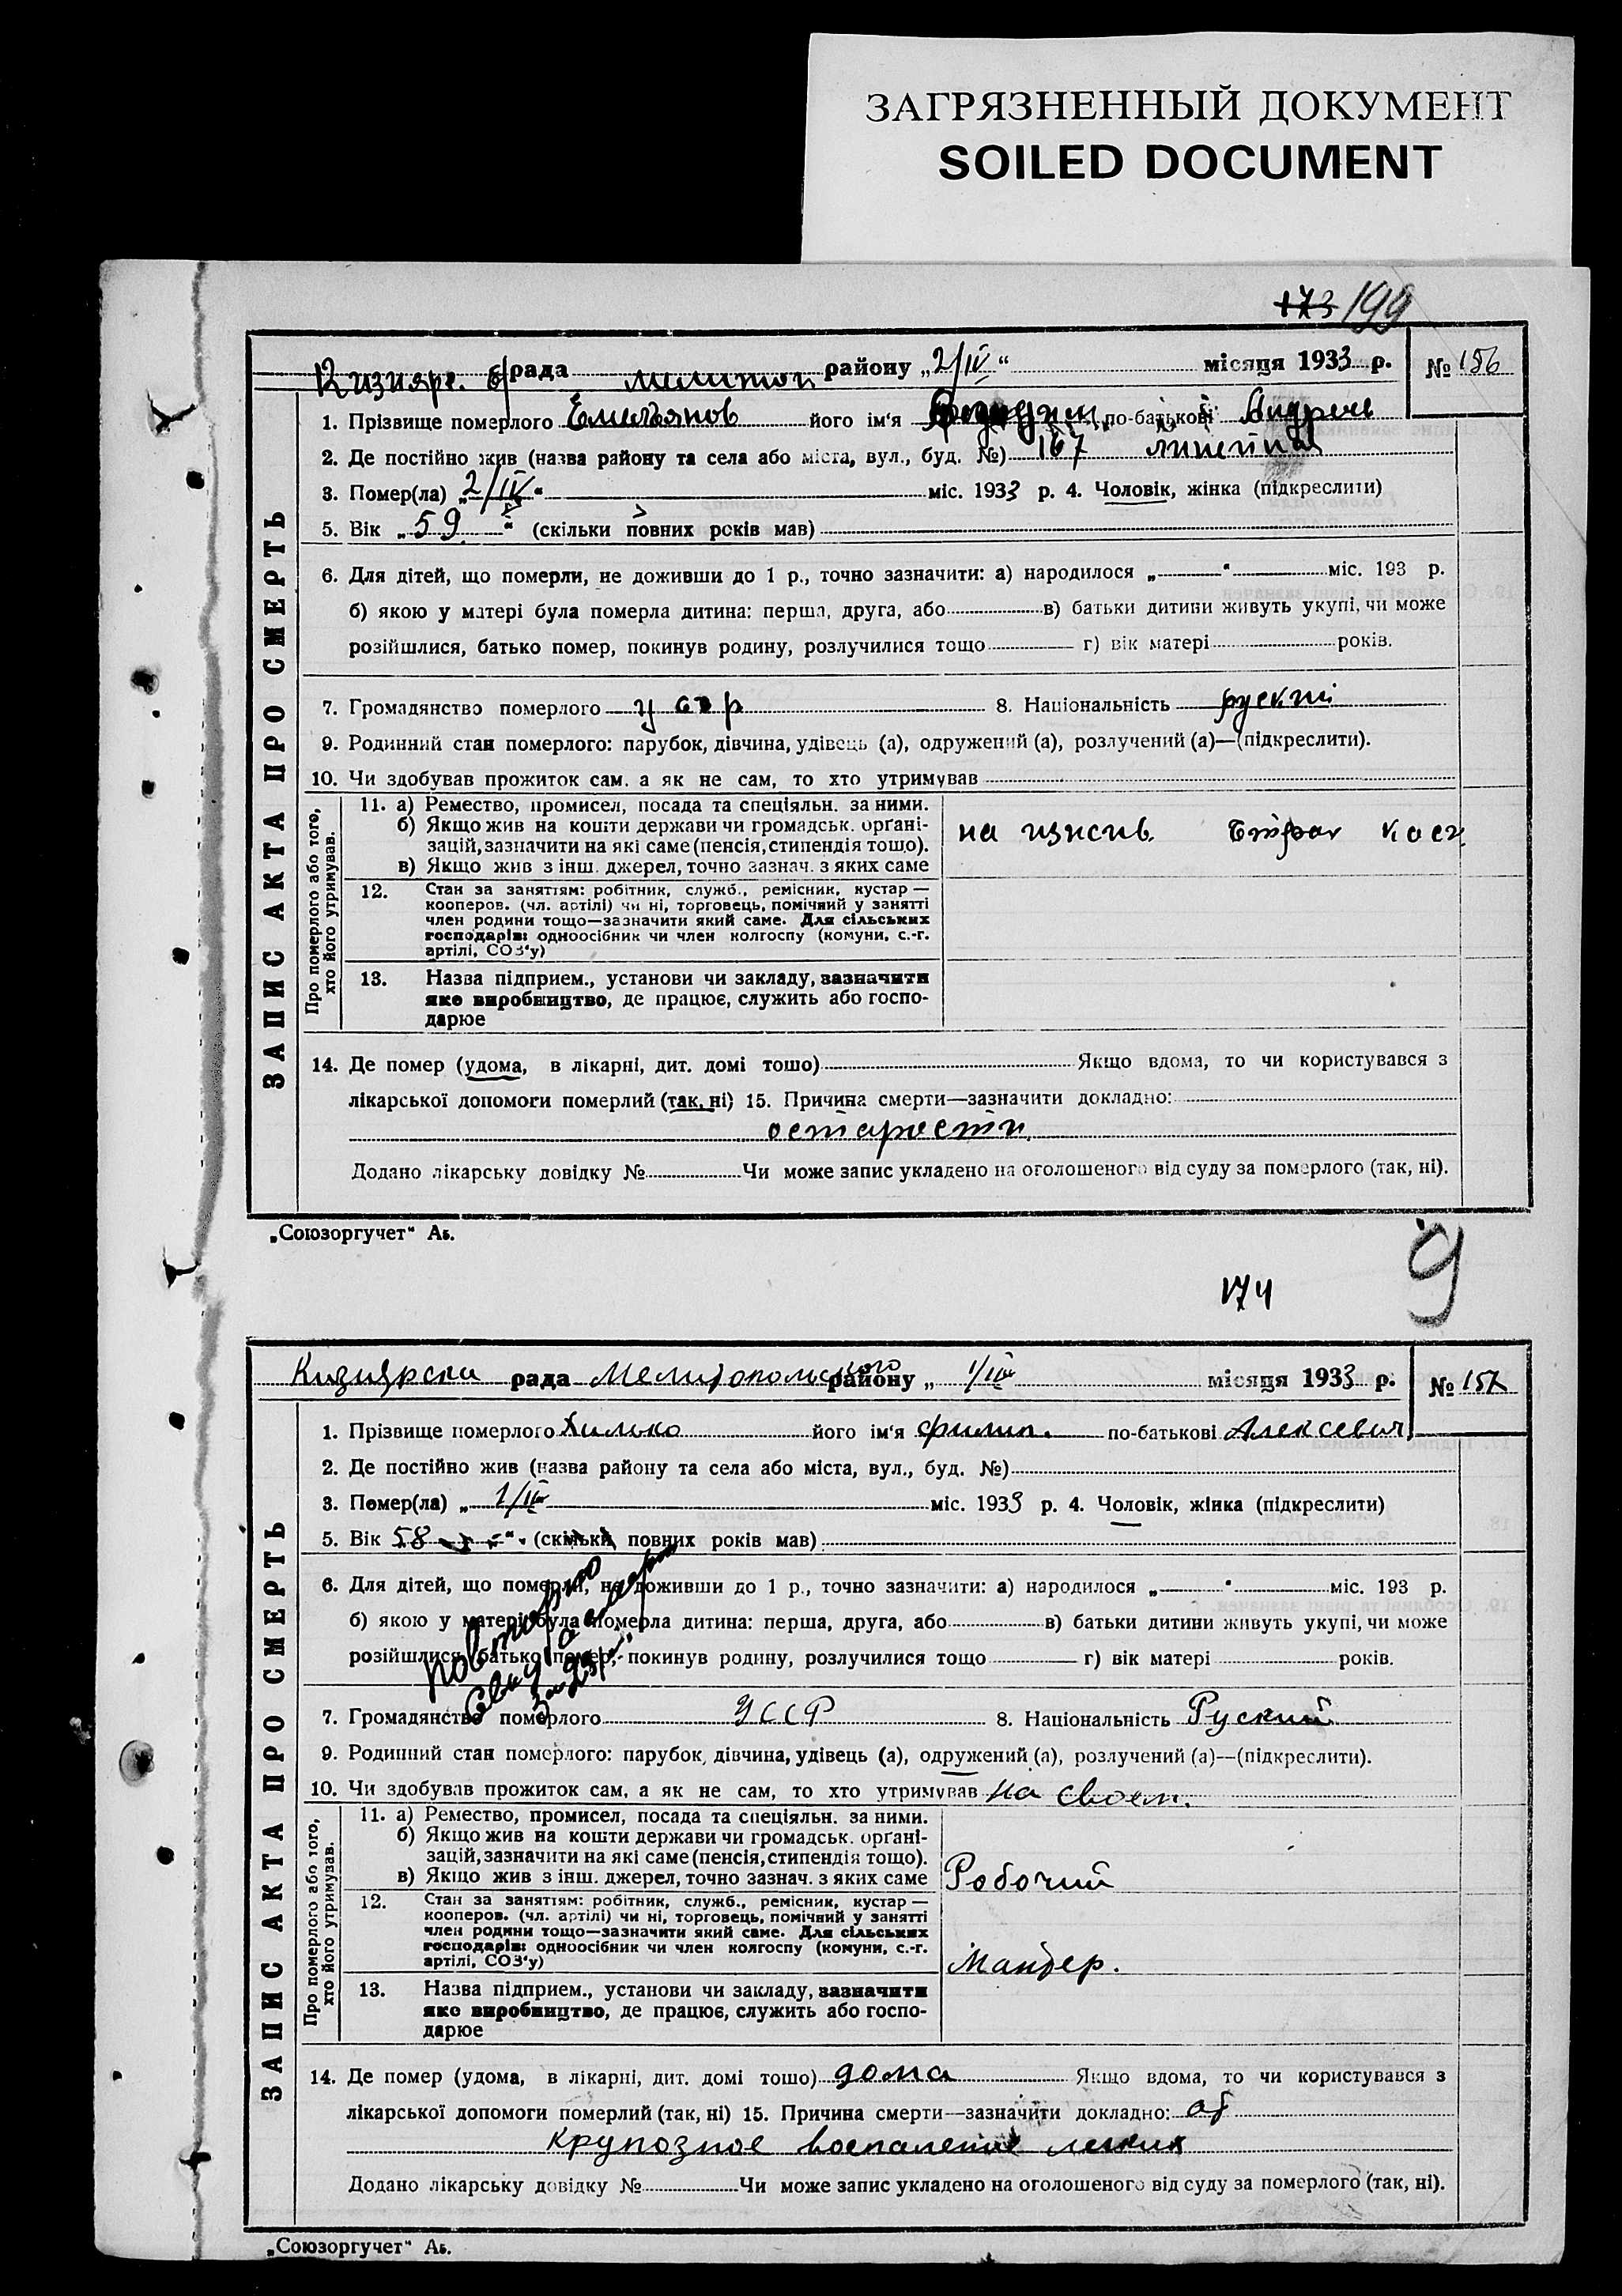 ЗАГРЯЗНЕННЫЙ ДОКУМЕНТ
SOILED DOCUMENT
173 199
Кизияр. с/рада мелитоп району „2/IV“ місяця 1933 р. № 156
1. Прізвище померлого Емельянов його ім'я по-батькові Андреев
2. Де постійно жив (назва району та села або міста, вул., буд. №) 167
3. Помер(ла) „2/IV“ міс. 1933 р. 4. Чоловік, жінка (підкреслити)
5. Вік „59“ (скільки повних років мав)
6. Для дітей, що померли, не доживши до 1 р., точно зазначити: а) народилося „ “ міс. 193 р.
б) якою у матері була померла дитина: перша, друга, або в) батьки дитини живуть укупі, чи може
розійшлися, батько помер, покинув родину, розлучилися тощо г) вік матері років.
7. Громадянство померлого у сср 8. Національність руский
9. Родинний стан померлого: парубок, дівчина, удівець (а), одружений (а), розлучений (а)—(підкреслити).
10. Чи здобував прожиток сам, а як не сам, то хто утримував
Про померлого або того, хто його утримував.
11. а) Ремество, промисел, посада та спеціяльн. за ними.
б) Якщо жив на кошти держави чи громадськ. орґані-
зацій, зазначити на які саме (пенсія, стипендія тощо).
в) Якщо жив з інш. джерел, точно зазнач. з яких саме
на изжив. страх касс
12. Стан за заняттям: робітник, служб., ремісник, кустар —
кооперов. (чл. артілі) чи ні, торговець, помічний у занятті
член родини тощо—зазначити який саме. Для сільських
господарів: одноосібник чи член колгоспу (комуни, с.-г.
артілі, СОЗ'у)
13. Назва підприєм., установи чи закладу, зазначити
яке виробництво, де працює, служить або госпо-
дарює
14. Де помер (удома, в лікарні, дит. домі тощо) Якщо вдома, то чи користувався з
лікарської допомоги померлий (так, ні) 15. Причина смерти—зазначити докладно:
от старости
Додано лікарську довідку № Чи може запис укладено на оголошеного від суду за померлого (так, ні).
ЗАПИС АКТА ПРО СМЕРТЬ
„Союзоргучет“ Аб.
9
174
Кизиярски рада Мелитопольского району „ 1/III місяця 1933 р. № 157
1. Прізвище померлого Хилько його ім'я филип. по-батькові Алексевич
2. Де постійно жив (назва району та села або міста, вул., буд. №)
3. Помер(ла) „ 1/III міс. 1933 р. 4. Чоловік, жінка (підкреслити)
5. Вік 58 “ (скільки повних років мав)
6. Для дітей, що померли, не доживши до 1 р., точно зазначити: а) народилося „ “ міс. 193 р.
б) якою у матері була померла дитина: перша, друга, або в) батьки дитини живуть укупі, чи може
розійшлися, батько помер, покинув родину, розлучилися тощо г) вік матері років.
повторно
7. Громадянство померлого УССР 8. Національність Руский
9. Родинний стан померлого: парубок, дівчина, удівець (а), одружений (а), розлучений (а)—(підкреслити).
10. Чи здобував прожиток сам, а як не сам, то хто утримував на своем.
Про померлого або того, хто його утримував.
11. а) Ремество, промисел, посада та спеціяльн. за ними.
б) Якщо жив на кошти держави чи громадськ. орґані-
зацій, зазначити на які саме (пенсія, стипендія тощо).
в) Якщо жив з інш. джерел, точно зазнач. з яких саме Робочий
12. Стан за заняттям: робітник, служб., ремісник, кустар —
кооперов. (чл. артілі) чи ні, торговець, помічний у занятті
член родини тощо—зазначити який саме. Для сільських
господарів: одноосібник чи член колгоспу (комуни, с.-г.
артілі, СОЗ'у)
13. Назва підприєм., установи чи закладу, зазначити
яке виробництво, де працює, служить або госпо-
дарює
14. Де помер (удома, в лікарні, дит. домі тощо) дома Якщо вдома, то чи користувався з
лікарської допомоги померлий (так, ні) 15. Причина смерти—зазначити докладно: от
крупозное воспаление легких
Додано лікарську довідку № Чи може запис укладено на оголошеного від суду за померлого (так, ні).
ЗАПИС АКТА ПРО СМЕРТЬ
„Союзоргучет“ Аб.